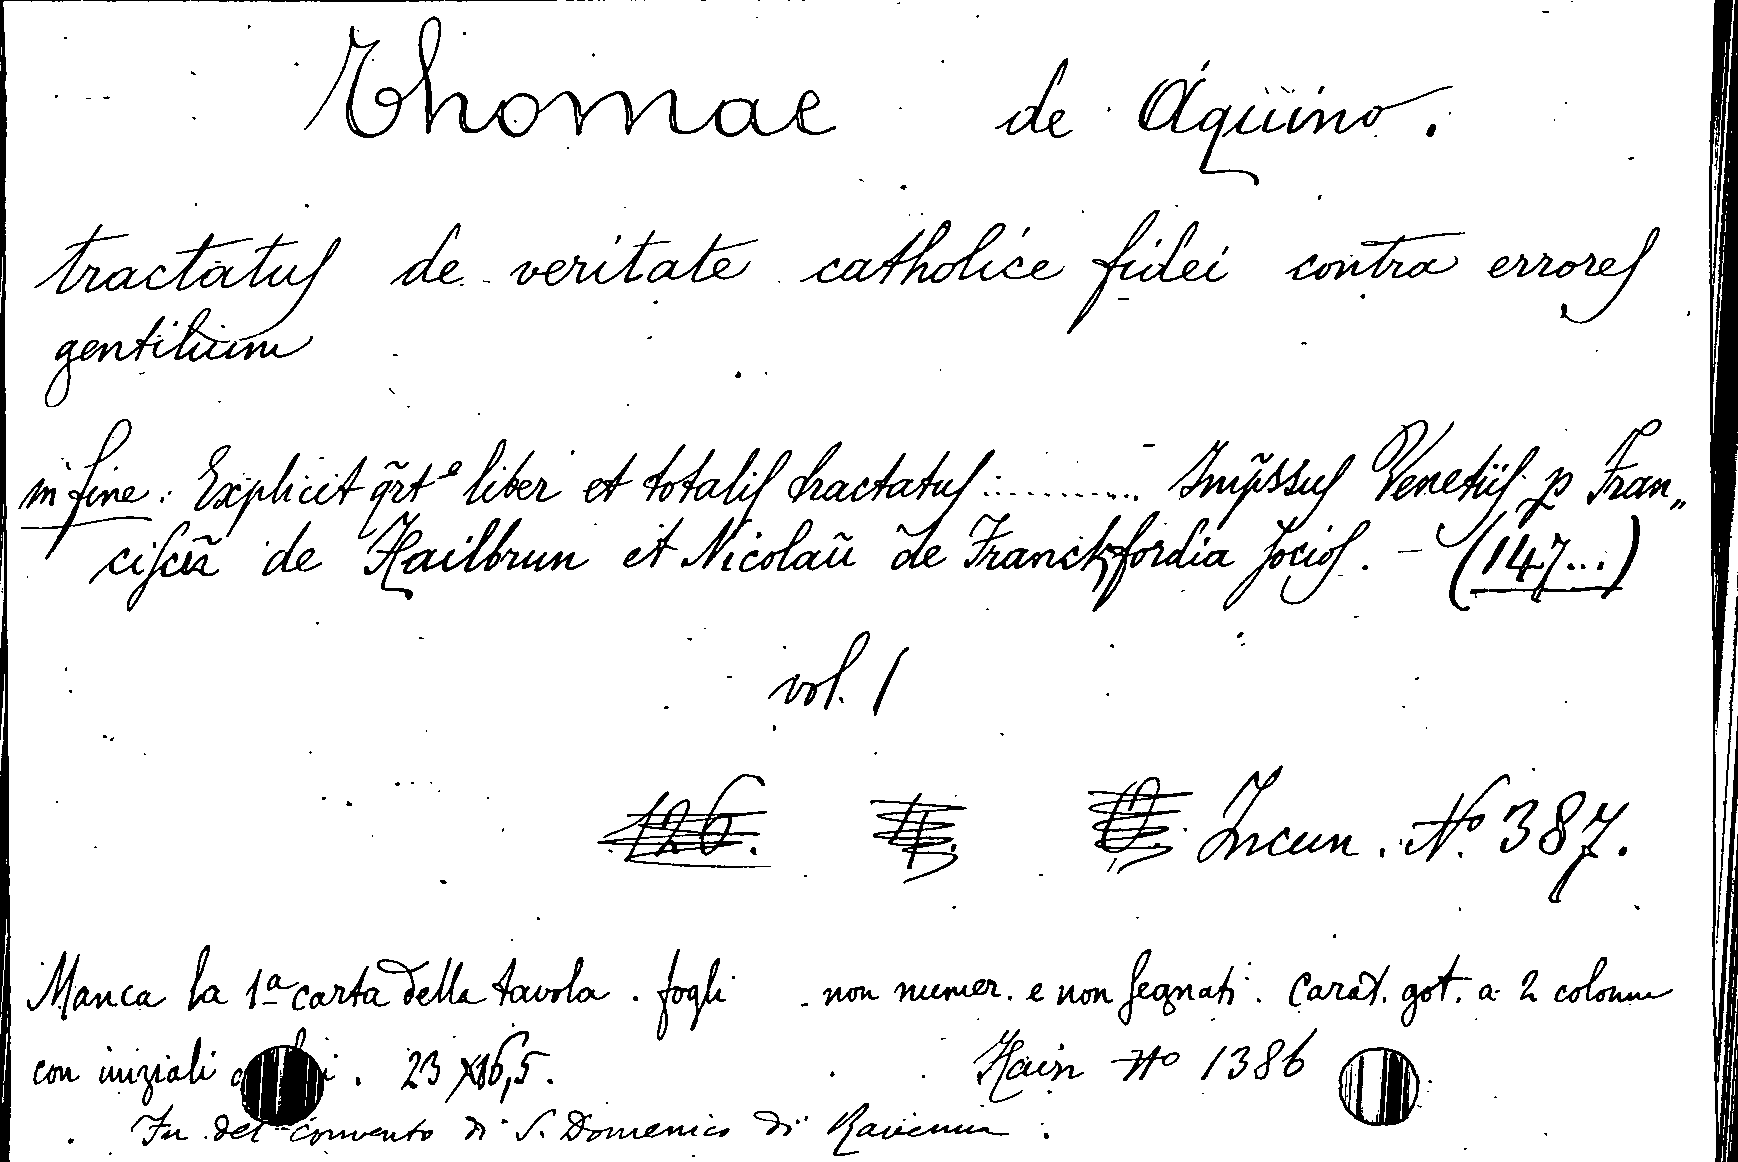 Thomae de Aquino.
tractatus de veritate catholice fidei contra errores
gentilium
in fine: Explicit q̃rt⁹ liber et totalis tractatus ............ Imp̃ssus Venetiis p Fran„
ciscũ de Hailbrun et Nicolaũ de Franckfordia socios. - (147...)
vol. 1
126. 4. Incun. Nº 387.
Manca la 1ª carta della tavola. fogli non numer. e non segnati. Carat. got. a 2 colonne
con iniziali . 23 x 16,5. Hain Nº 1386
Fu del convento di S. Domenico di Ravenna.